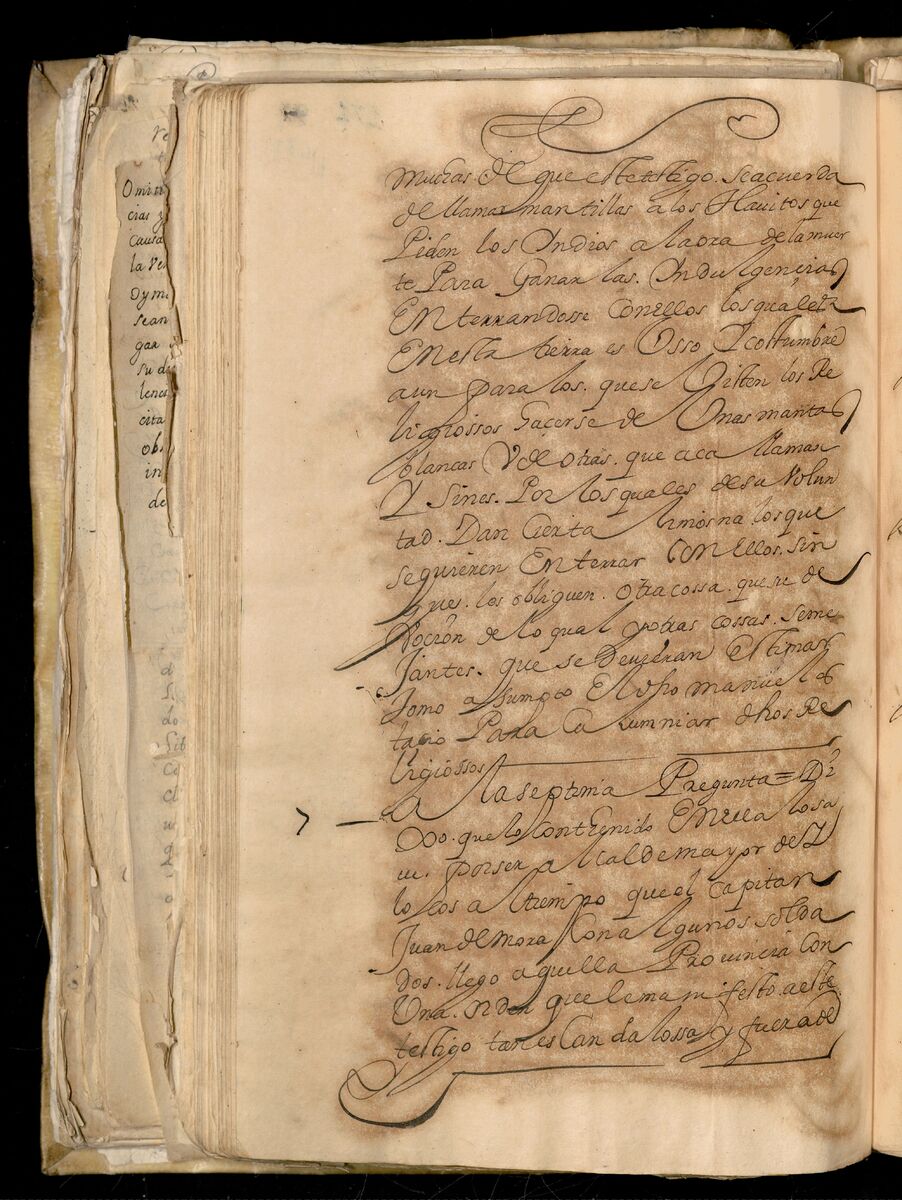 muchas del que este testigo. se acuerda
de llamar mantillas a los Hauitos que
Piden los Indios a la ora de la muer
te Para Ganar las. Indulgencias
Enterrandosse Con ellos los quales
En esta tierra es Osso Y costumbre
aun para los. que se Uisten los Re
ligiossos hacerse de Unas mantas
blancas Y de otras. que aca llaman
Y Sines. Por los quales de su Volun
tad. Dan Cierta limosna los que
se quieren Enterrar Con Ellos. sin
que. les obliguen. otra cossa. que su de
Vocion de lo qual y otras cossas. seme
Jantes. que se deuieran Estimar
tomo asumpto El dho manuel
Para Calumniar dhos Re
ligiossos
7 A la septima Pregunta = Di
xo. que lo Contenido En ella lo sa
ue. por ser alcalde mayor de Y
lo cos al tiempo que el Capitan
Juan de mora Con algunos solda
dos. llego aquella Prouincia Con
Una. orden que le manifesto a este
testigo tan escandalossa y fuera de
Omisi
cias y
causa
la Ve
dymi
sean
gar
su di
lenes
cita
obs
in
de